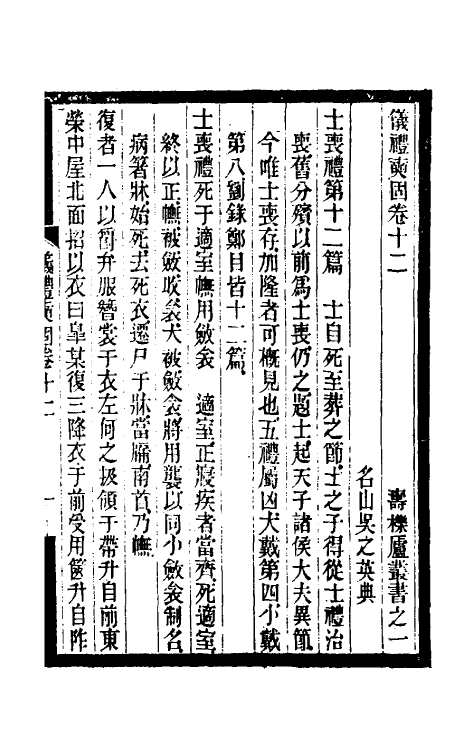 儀禮奭固卷十二 壽櫟廬叢書之一
名山吳之英典
士喪禮第十二篇 士自死至葬之節士之子得從士禮治
喪舊分殯以前為士喪仍之題士起天子諸侯大夫異節
今唯士喪存加隆者可概見也五禮屬凶大戴第四小戴
第八劉錄鄭目皆十二篇
士喪禮死于適室幠用斂衾 適室正寢疾者當齊死適室
終以正幠被斂收衾大被斂衾將用襲以同小斂衾制名
病箸牀始死去死衣遷尸于牀當牖南首乃幠
復者一人以爵弁服簪裳于衣左何之扱領于帶升自前東
榮中屋北面招以衣曰皋某復三降衣于前受用篋升自阼
儀禮奭固卷十二 一